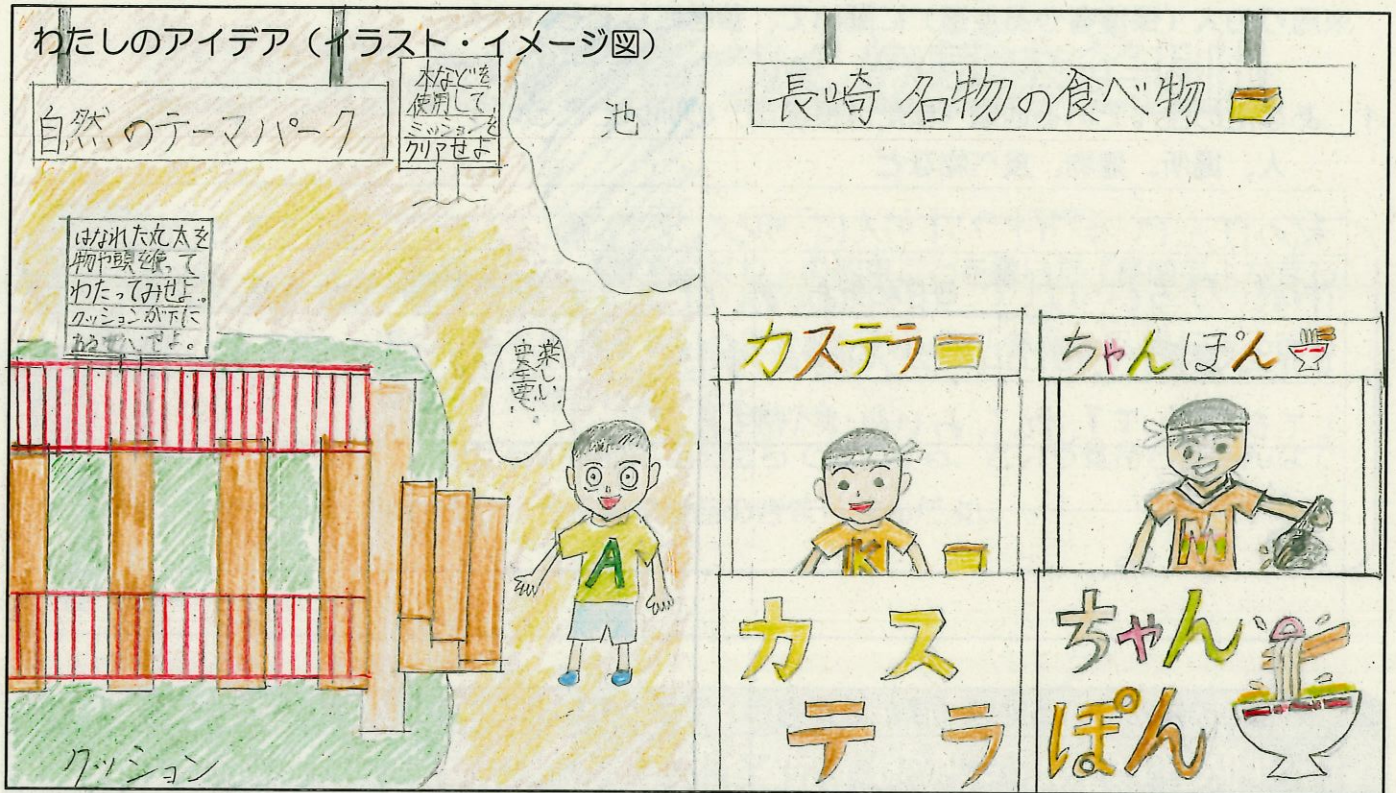 わたしのアイデア（イラスト・イメージ図）
自然のテーマパーク
木などを
使用して、
ミッションを
クリアせよ
池
はなれた丸太を
物や頭を使って
わたってみせよ。
クッションが下に
楽しい
A
クッション
長崎 名物の食べ物
カステラ
ちゃんぽん
K
M
カス
テラ
ちゃん
ぽん